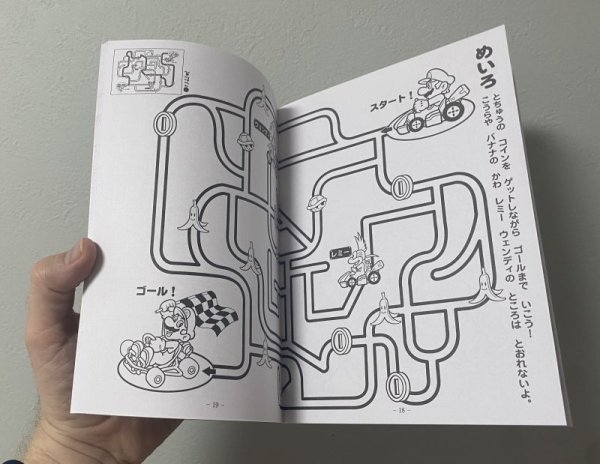 めいろ
とちゅうの コインを ゲットしながら ゴールまで いこう！
こうらや バナナの かわ レミー ウェンディの ところは とおれないよ。
スタート！
レミー
ゴール！
- 18 -
- 19 -